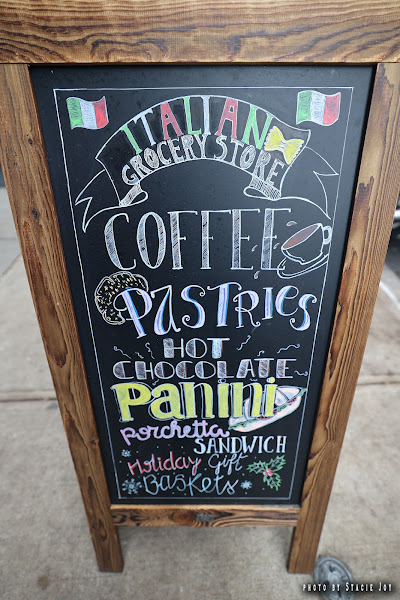 ITALIAN
GROCERY STORE
COFFEE
PASTRIES
HOT
CHOCOLATE
Panini
Porchetta
SANDWICH
Holiday Gift
Baskets
PHOTO BY STACIE JOY